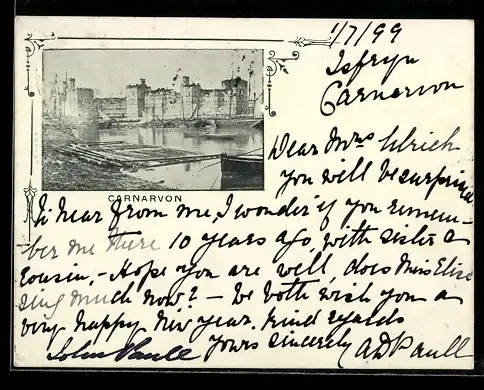 1/7/99
Isfryn
Carnarvon
Dear Mrs Ulrich
you will be surprised
CARNARVON
to hear from me, I wonder if you remem-
ber me there 10 years ago, with sister &
cousin, - Hope you are well, does Miss Elise
sing much now? - We both wish you a
very happy New year. Kind regards
Yours sincerely
John Paull
A D Paull